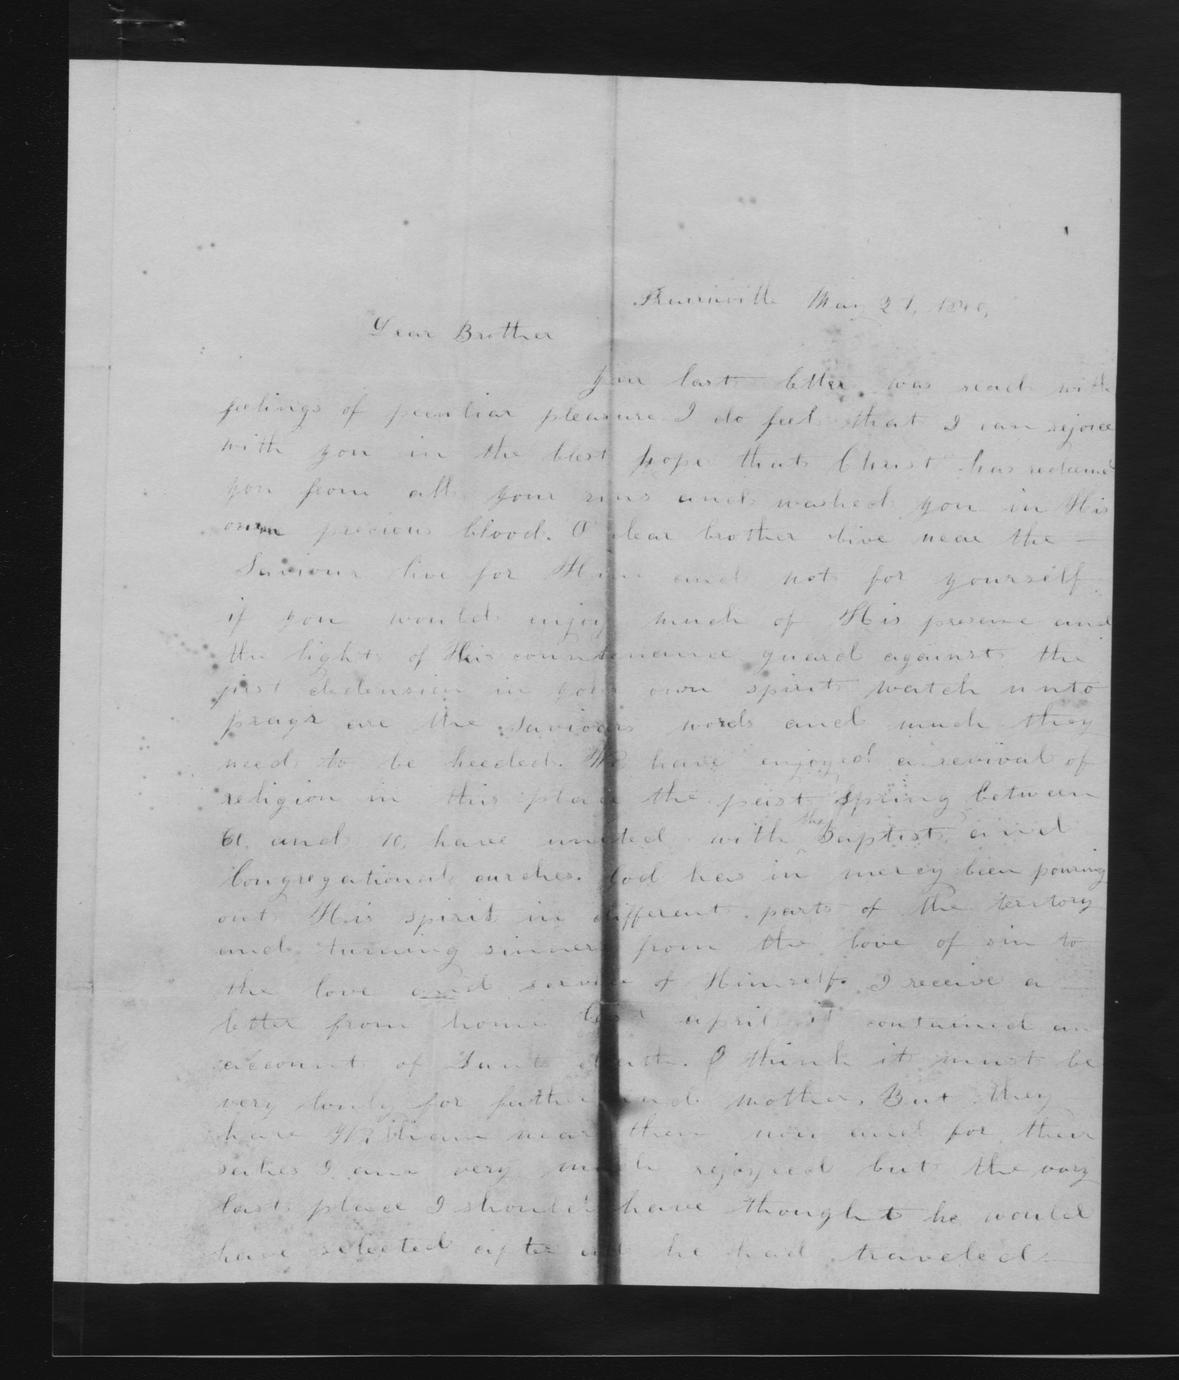 Prairieville May 21, 1840,
Dear Brother
your last letter was read with
feelings of peculiar pleasure I do feel that I can rejoice
with you in the blest hope that Christ has redeemd
you from all your sins and washed you in His
own precious blood. O dear brother live near the
Saviour live for Him and not for yourself
if you would enjoy much of His presence and
the light of His countenance guard against the
first declension in your own spirit watch unto
prayr are the Saviours words and much they
need to be heeded. We have enjoyed a revival of
religion in this place the past spring between
60 and 70 have united with the Baptist and
Congregational curches. God has in mercy been pouring
out His spirit in different parts of the territory
and turning sinners from the love of sin to
the love and service of Himself. I receive a
letter from home last april it contained an
account of Aunts death. I think it must be
very lonely for father and mother. But they
have William near them now and for their
sakes I am very much rejoyced but the very
last place I should have thought he would
have selected after all he had traveled